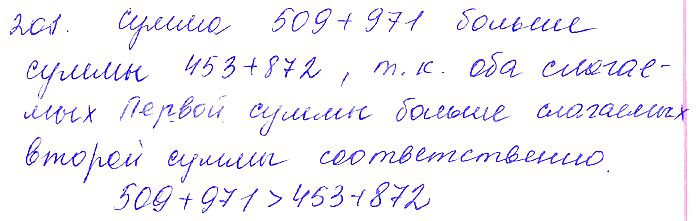 201. Сумма 509+971 больше
суммы 453+872, т.к. оба слагае-
мых Первой суммы больше слагаемых
второй суммы соответственно.
509+971>453+872